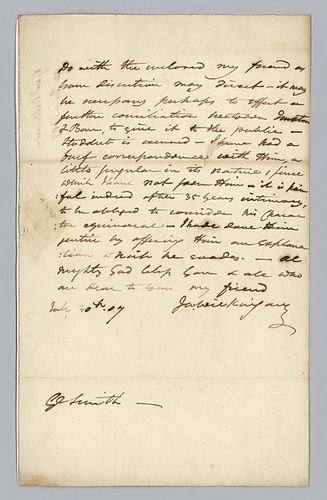 Do with the inclosed my friend as
Your discretion may direct - it may
be necessary perhaps to effect a
further conciliation between
& Burr to give it to the public -
is - I have had a
brief correspondence with Him, a
little singular in its nature, since
which I have not seen Him - it is pain
ful indeed after 35 Years intimacy,
to be obliged to consider his Charac
ter equivocal - I have done Him
justice by offering Him an explana
tion which he evades. - Al
mighty God bless You & all who
are dear to You my friend
July 30th 07
CJ Smith -